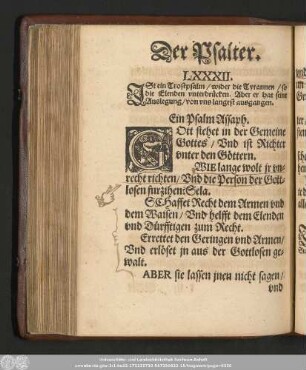 Der Psalter.
LXXXII.
ISt ein Trostpsalm / wider die Tyrannen / so
die Elenden vnterdrücken. Aber er hat sein
Auslegung / von vns langest ausgangen.
Ein Psalm Assaph.
GOtt stehet in der Gemeine
Gottes / Vnd ist Richter
vnter den Göttern.
WIE lange wolt jr vn-
recht richten / Vnd die Person der Gott-
losen furzihen: Sela.
SCHaffet Recht dem Armen vnd
dem Waisen / Vnd helfft dem Elenden
vnd Dürfftigen zum Recht.
Errettet den Geringen vnd Armen /
Vnd erlöset jn aus der Gottlosen ge-
walt.
ABER sie lassen jnen nicht sagen /
vnd